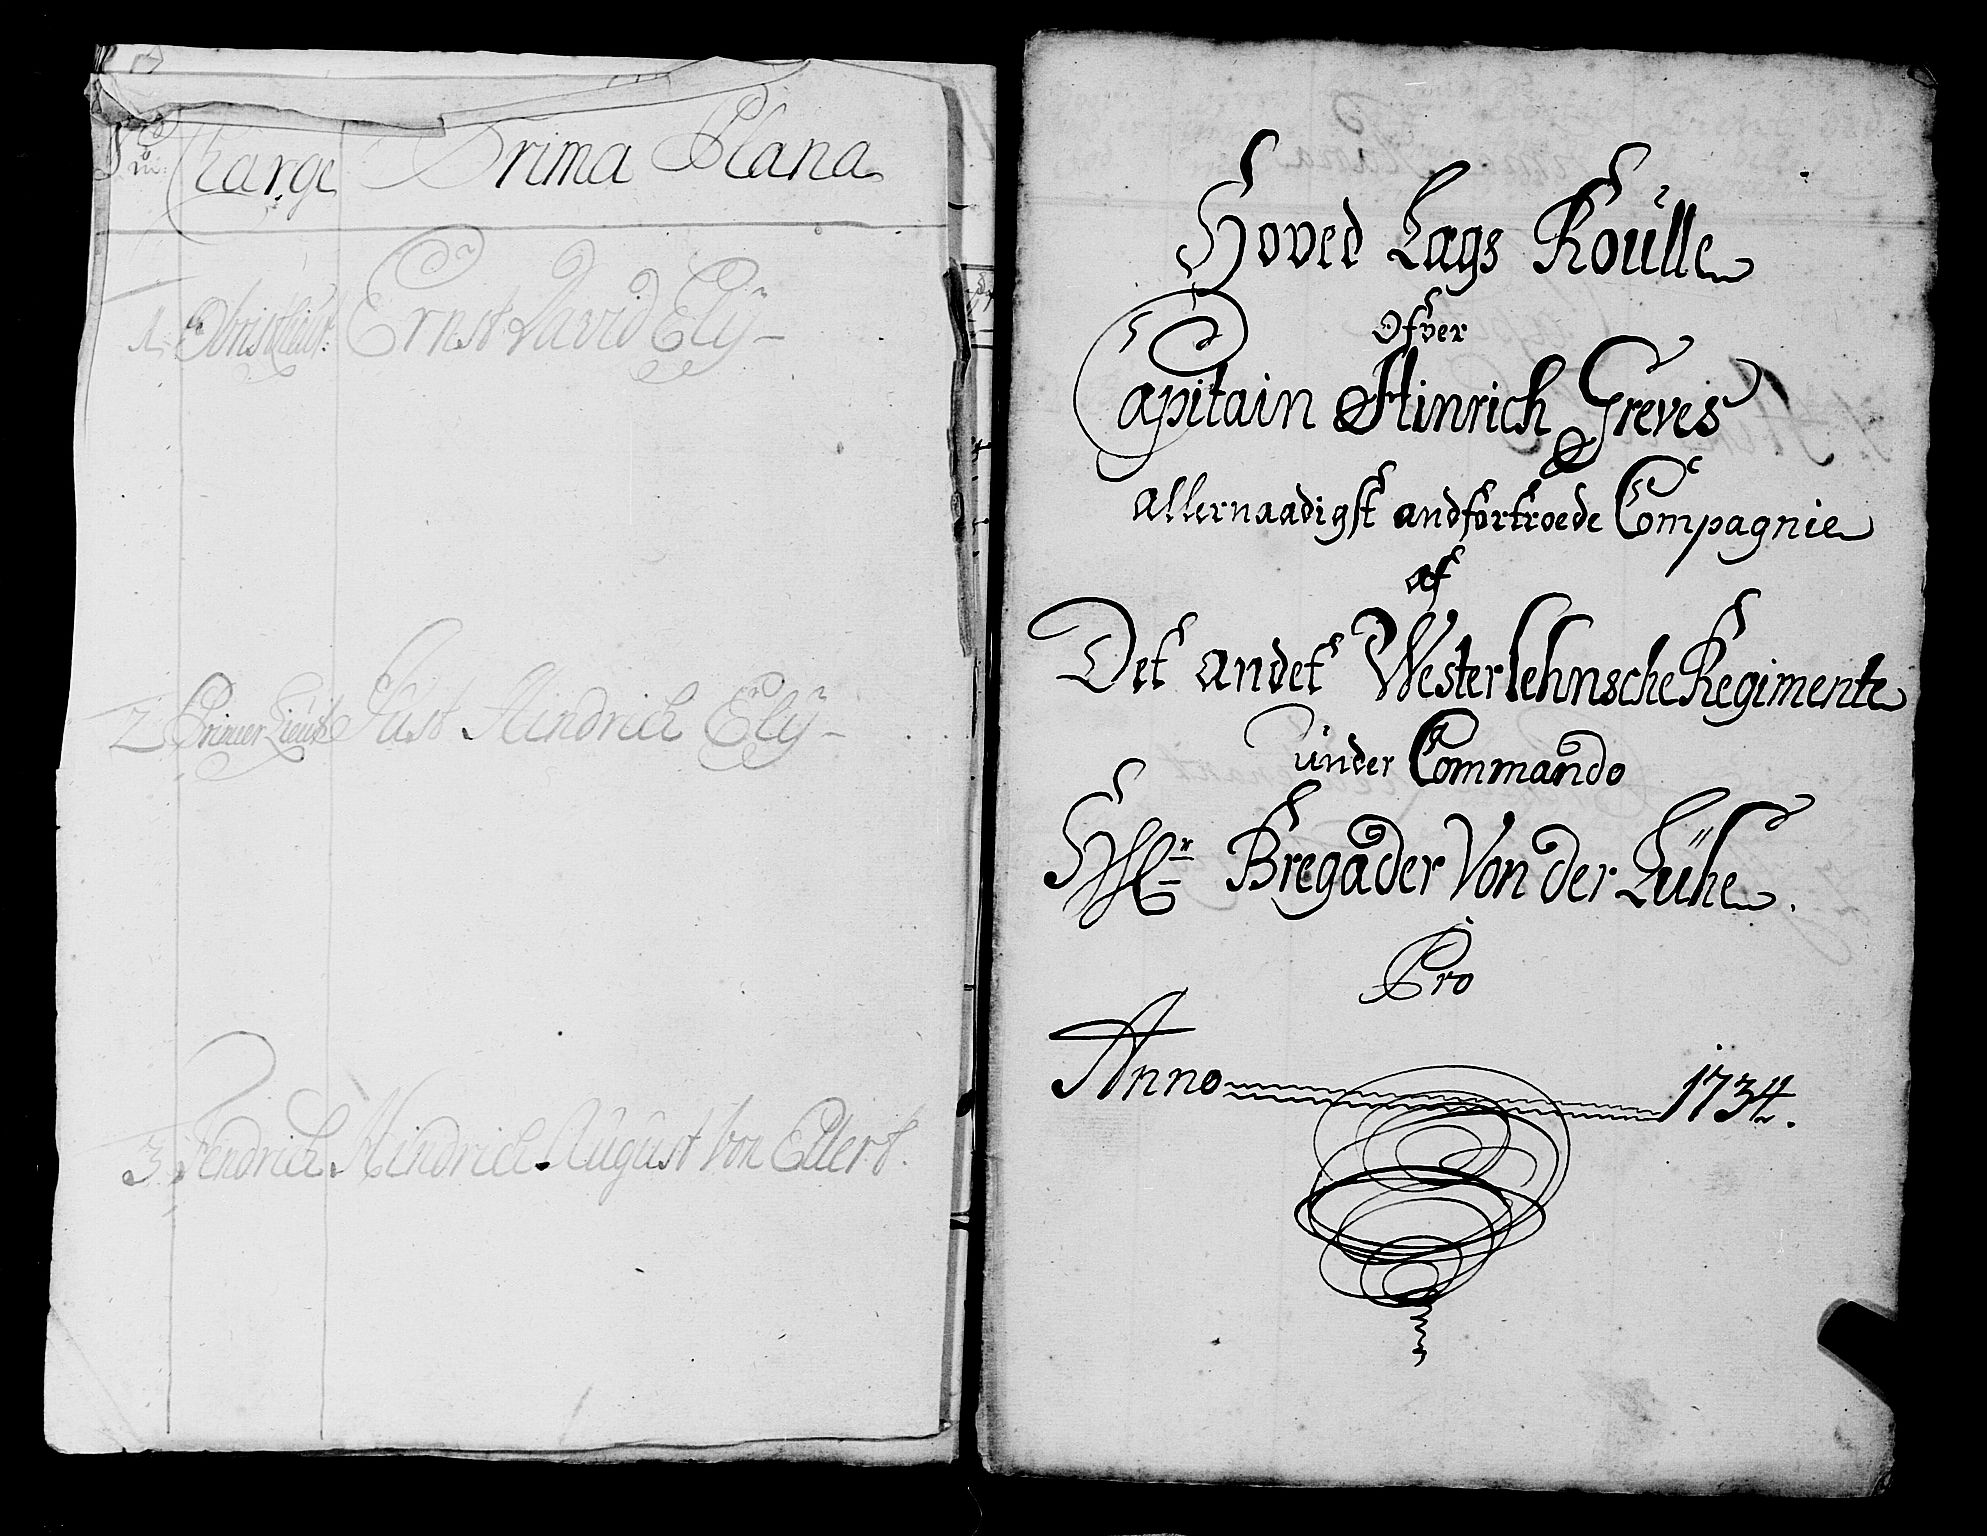 No
Charge Prima Plana
1. Obristleut: Ernst David Elÿ
2 Primer Lieut Just Hindrich Elÿ
3. Fendrich Hindrich August Von Ellert.
Hoved Lags Roulle
Ofver
Capitain Hinrich Greves
allernaadigst andfortroede Compagnie
af
Det andet Westerlehnsche Regimente
under Commando
Hr Bregader Von der Lühe.
Pro
Anno 1734.